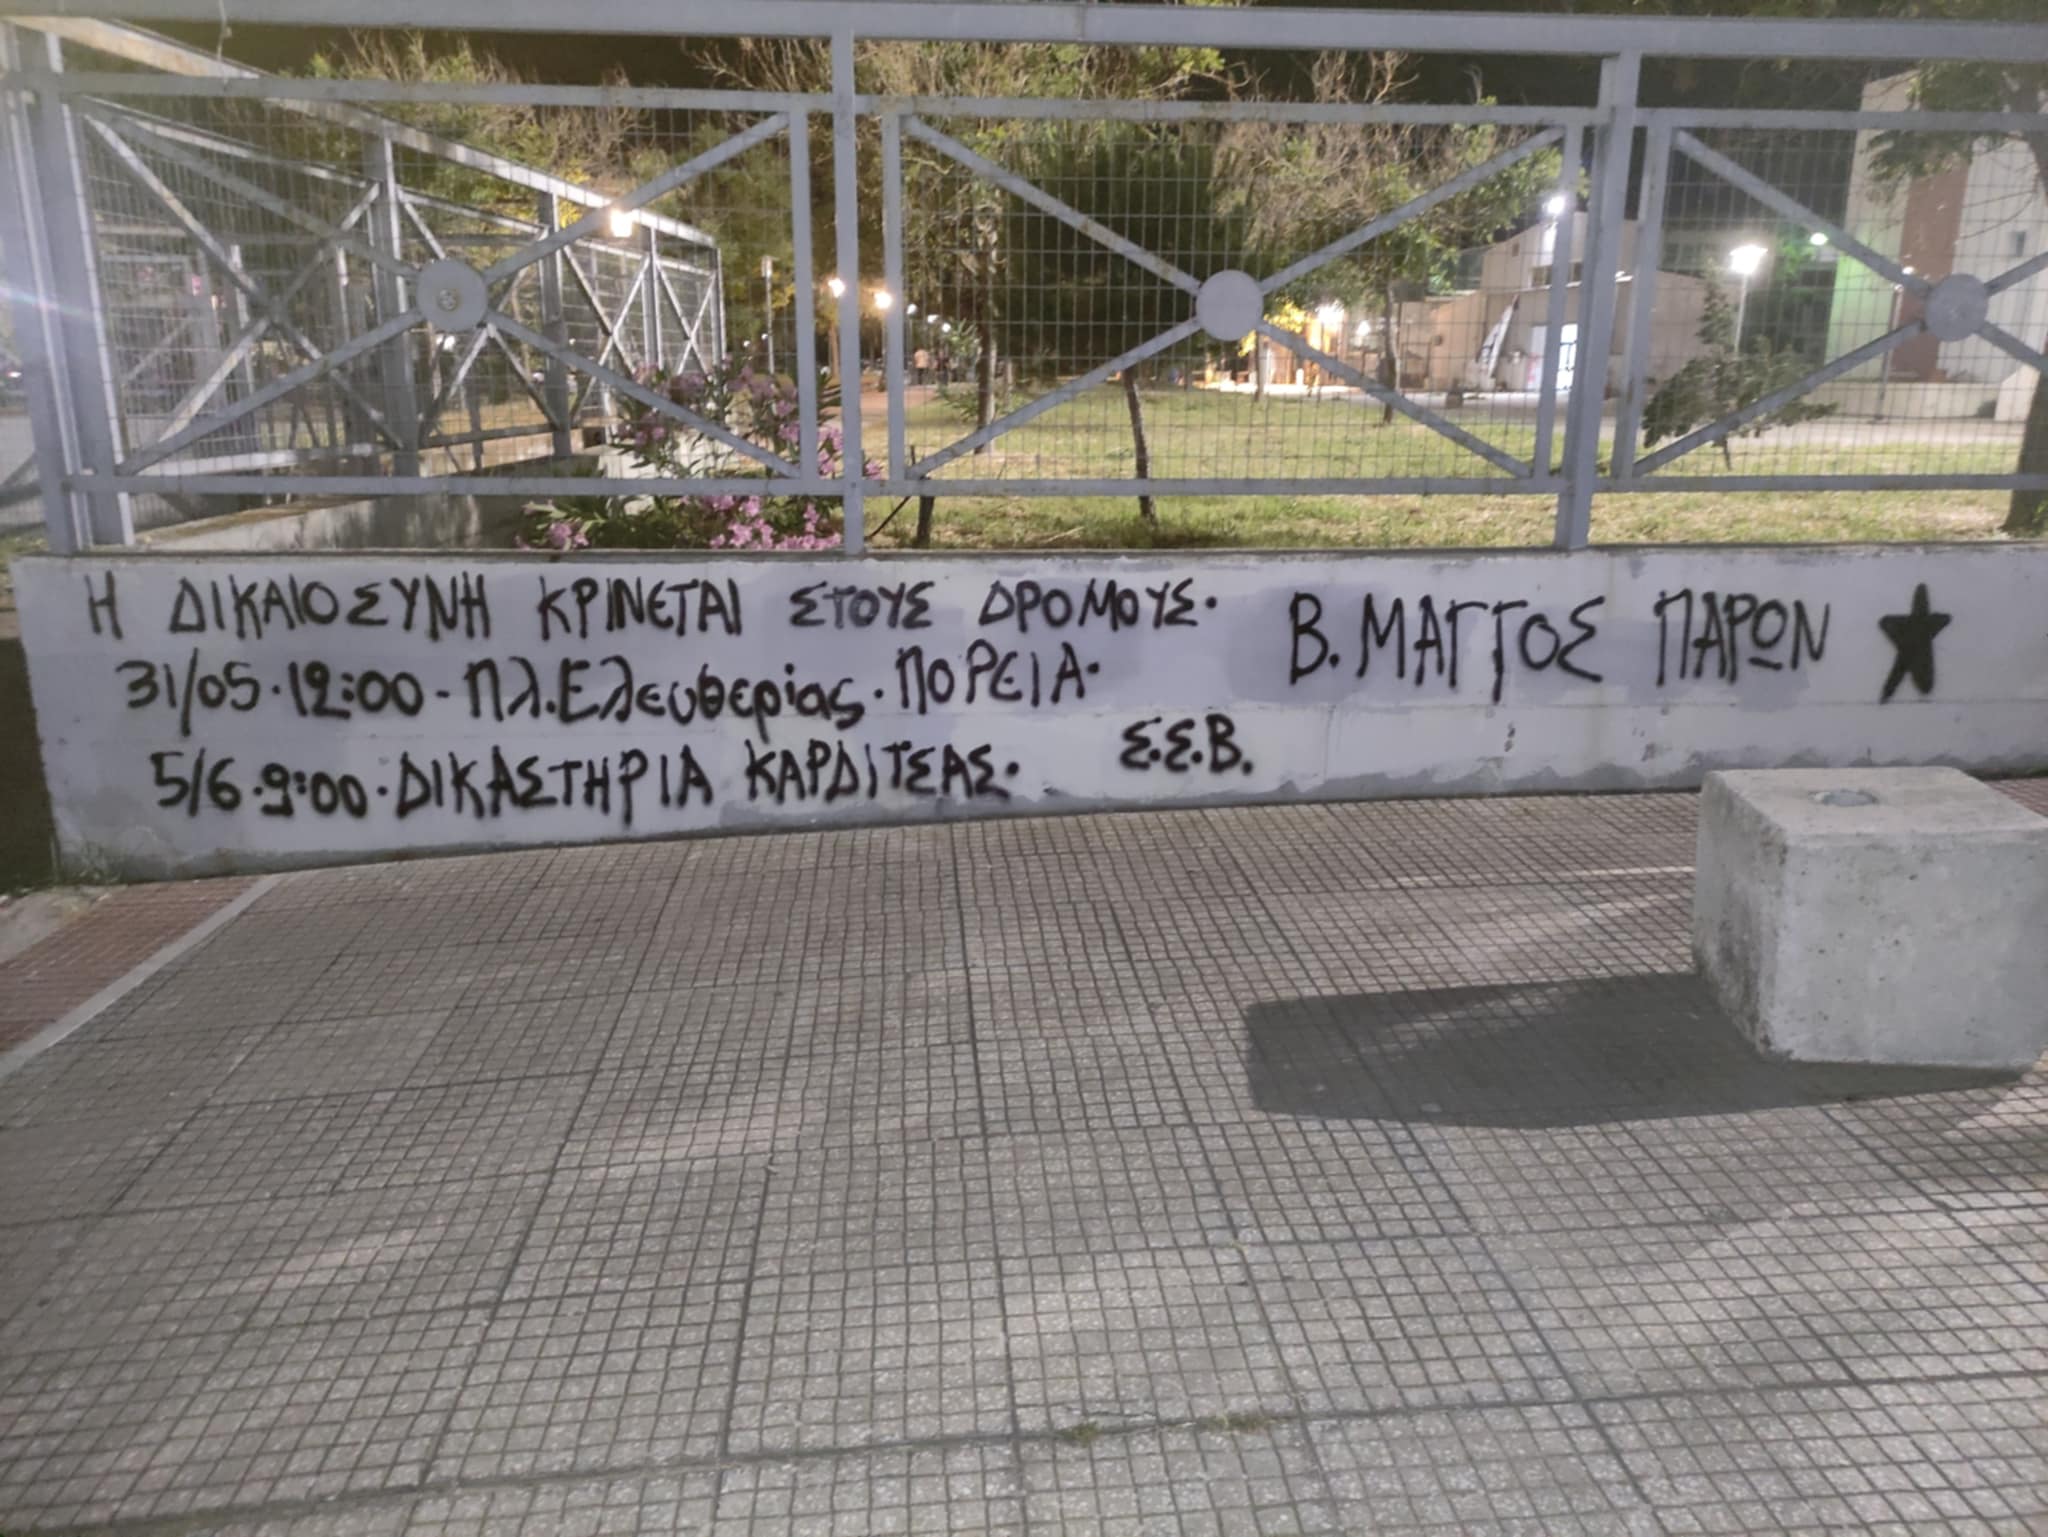 Η ΔΙΚΑΙΟΣΥΝΗ ΚΡΙΝΕΤΑΙ ΣΤΟΥΣ ΔΡΟΜΟΥΣ.
31/05·12:00-Πλ.Ελευθερίας·ΠΟΡΕΙΑ·
5/6·9:00·ΔΙΚΑΣΤΗΡΙΑ ΚΑΡΔΙΤΣΑΣ·
Σ.Σ.Β.
Β.ΜΑΓΓΟΣ ΠΑΡΩΝ ★